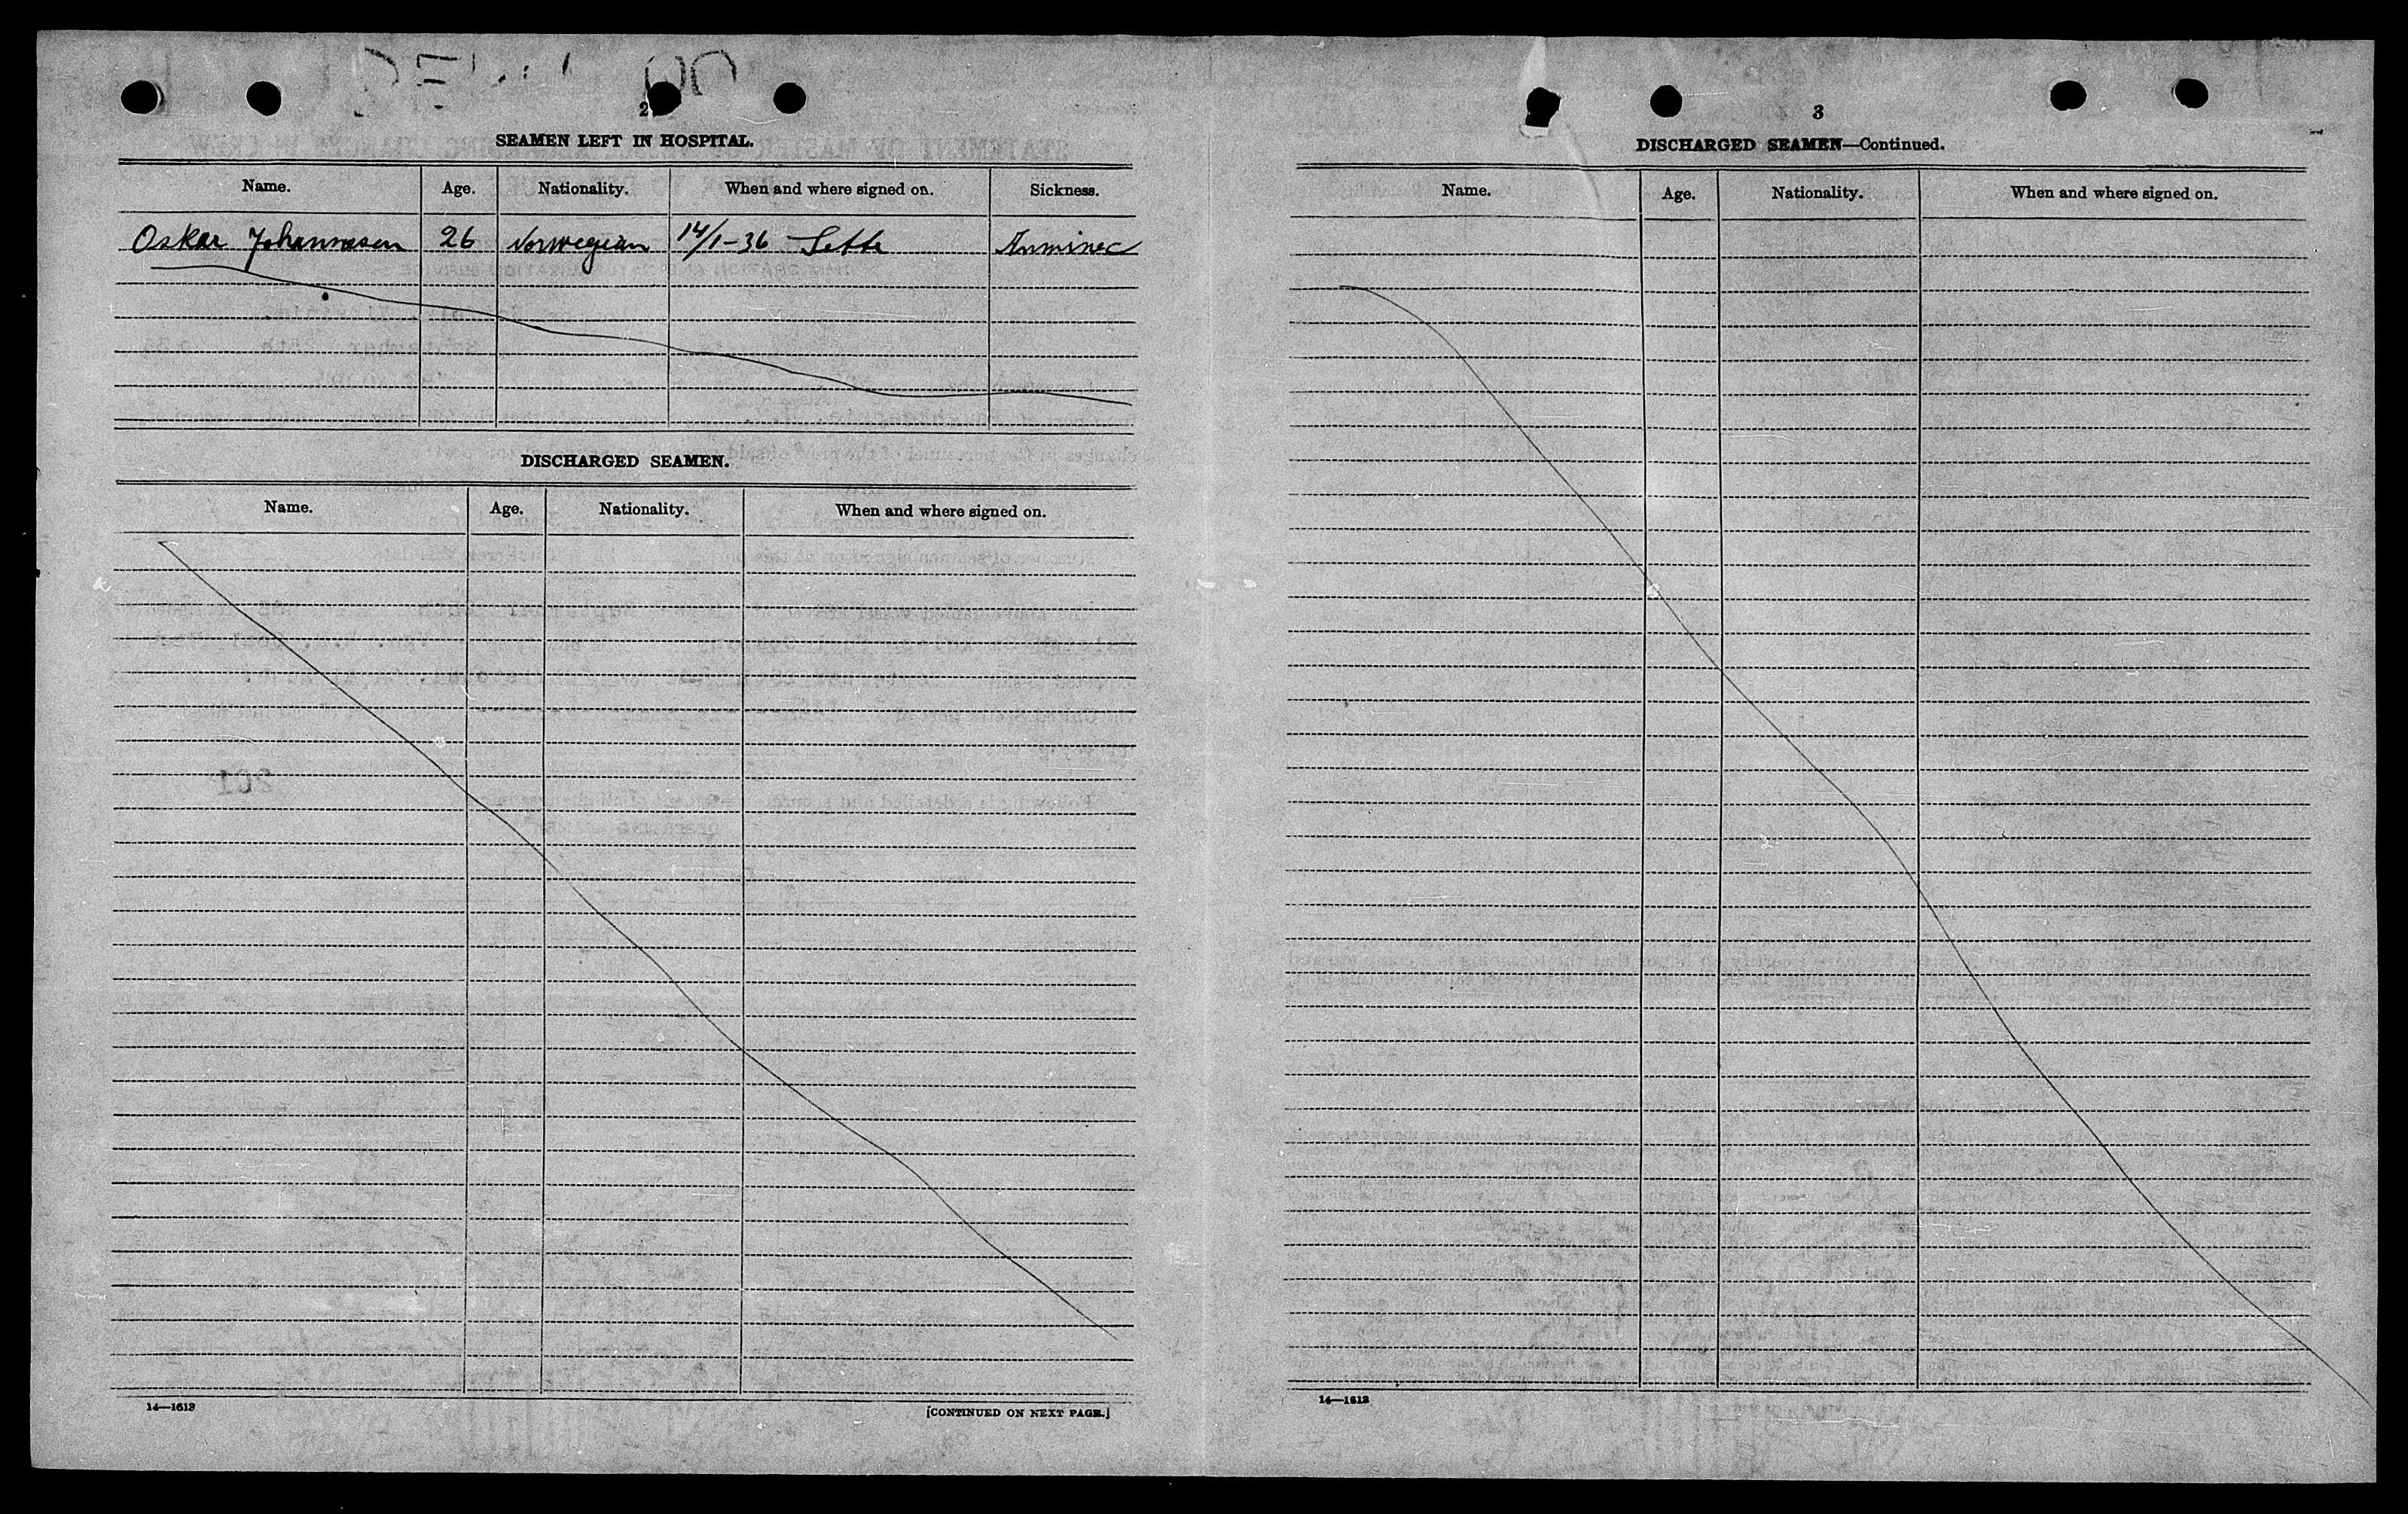 2
SEAMEN LEFT IN HOSPITAL.
Name. Age. Nationality. When and where signed on. Sickness.
Oskar Johannesen 26 Norwegian 14/1-36 Sette
DISCHARGED SEAMEN.
Name. Age. Nationality. When and where signed on.
14—1613
[CONTINUED ON NEXT PAGE.]
3
DISCHARGED SEAMEN—Continued.
Name. Age. Nationality. When and where signed on.
14—1613